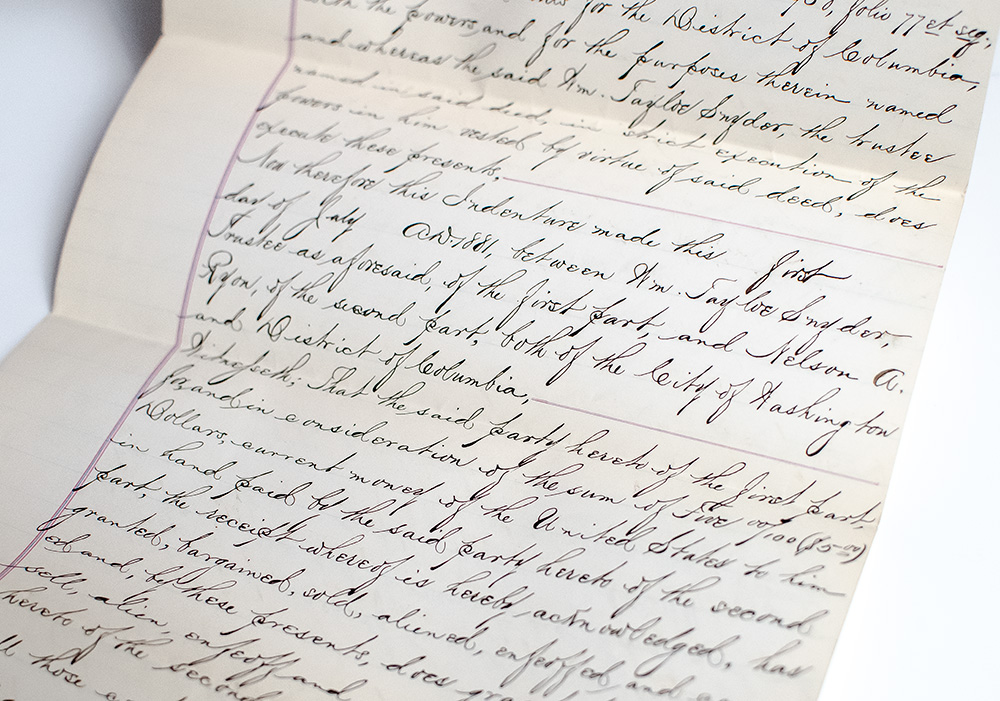 for the District of Columbia,
with the powers and for the purposes therein named
and whereas the said Wm. Tayloe Snyder, the trustee
named in said deed, in strict execution of the
powers in him vested by virtue of said deed, does
execute these presents.
Now therefore this Indenture made this first
day of July A.D. 1881, between Wm. Tayloe Snyder,
Trustee as aforesaid, of the first part, and Nelson A.
Ryon, of the second part, both of the City of Washington
and District of Columbia,
Witnesseth; That the said party hereto of the first part,
for and in consideration of the sum of Five 00/100 ($5.00)
Dollars, current money of the United States to him
in hand paid by the said party hereto of the second
part, the receipt whereof is hereby acknowledged, has
granted, bargained, sold, aliened, enfeoffed and
ed and, by these presents, does
sell, alien, enfeoff and
hereto of the second
those